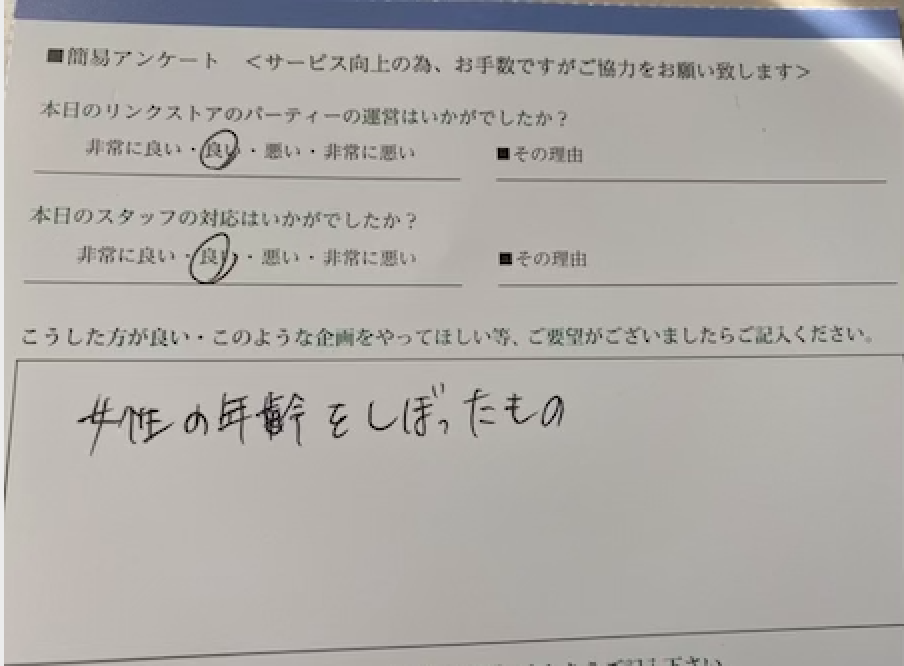 ■簡易アンケート ＜サービス向上の為、お手数ですがご協力をお願い致します＞
本日のリンクストアのパーティーの運営はいかがでしたか？
非常に良い・良い・悪い・非常に悪い ■その理由
本日のスタッフの対応はいかがでしたか？
非常に良い・良い・悪い・非常に悪い ■その理由
こうした方が良い・このような企画をやってほしい等、ご要望がございましたらご記入ください。
女性の年齢をしぼったもの